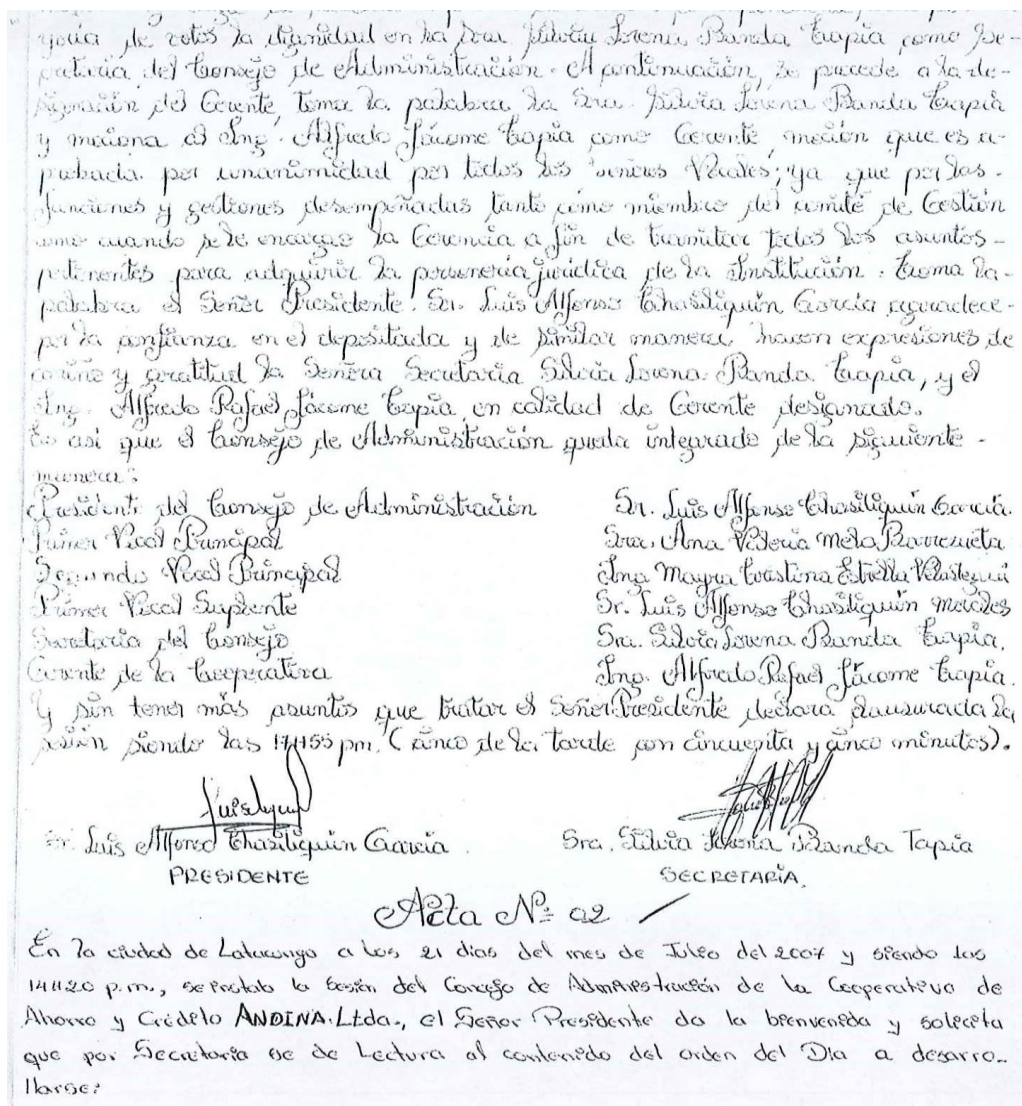 yoria de votos la dignidad en la Sra. Silvia Lorena Banda Tapia como Se-
cretaria del Consejo de Administración. A continuación, se procede a la de-
signación del Gerente, toma la palabra la Sra. Silvia Lorena Banda Tapia
y mociona al Ing. Alfredo Jácome Tapia como Gerente, moción que es a-
probada por unanimidad por todos los señores Vocales; ya que por las-
funciones y gestiones desempeñadas tanto como miembro del comité de Gestión
como cuando se le encargo la Gerencia a fin de tramitar todos los asuntos-
pertinentes para adquirir la personería jurídica de la Institución. Toma la-
palabra el Señor Presidente. Sr. Luis Alfonso Chasiliquín García agradece-
por la confianza en el depositada y de similar manera, hacen expresiones de
cariño y gratitud la Señora Secretaria Silvia Lorena Banda Tapia, y el
Ing. Alfredo Rafael Jácome Tapia, en calidad de Gerente designado.
Es asi que el Consejo de Administración queda integrado de la siguiente-
manera:
Presidente del Consejo de Administración Sr. Luis Alfonso Chasiliquín García.
Primer Vocal Principal Sra. Ana Victoria Mela Barrezueta
Segundo Vocal Principal Ing Mayra Cristina Estrella
Primer Vocal Suplente Sr. Luis Alfonso Chasiliquín
Secretaria del Consejo Sra. Silvia Lorena Banda Tapia.
Gerente de la Cooperativa Ing. Alfredo Rafael Jácome Tapia.
Y sin tener más asuntos que tratar el Señor Presidente declara clausurada la
sesión siendo las 17H55 pm. (cinco de la tarde con cincuenta y cinco minutos).
Sr. Luis Alfonso Chasiliquín García Sra. Silvia Lorena Banda Tapia
PRESIDENTE SECRETARIA.
Acta Nº 02
En la ciudad de Latacunga a los 21 dias del mes de Julio del 2007 y siendo las
14H20 p.m., se instala la Sesión del Consejo de Administración de la Cooperativa de
Ahorro y Crédito ANDINA Ltda., el Señor Presidente da la bienvenida y solicita
que por Secretaria se de Lectura al contenido del orden del Dia a desarro-
llarse: